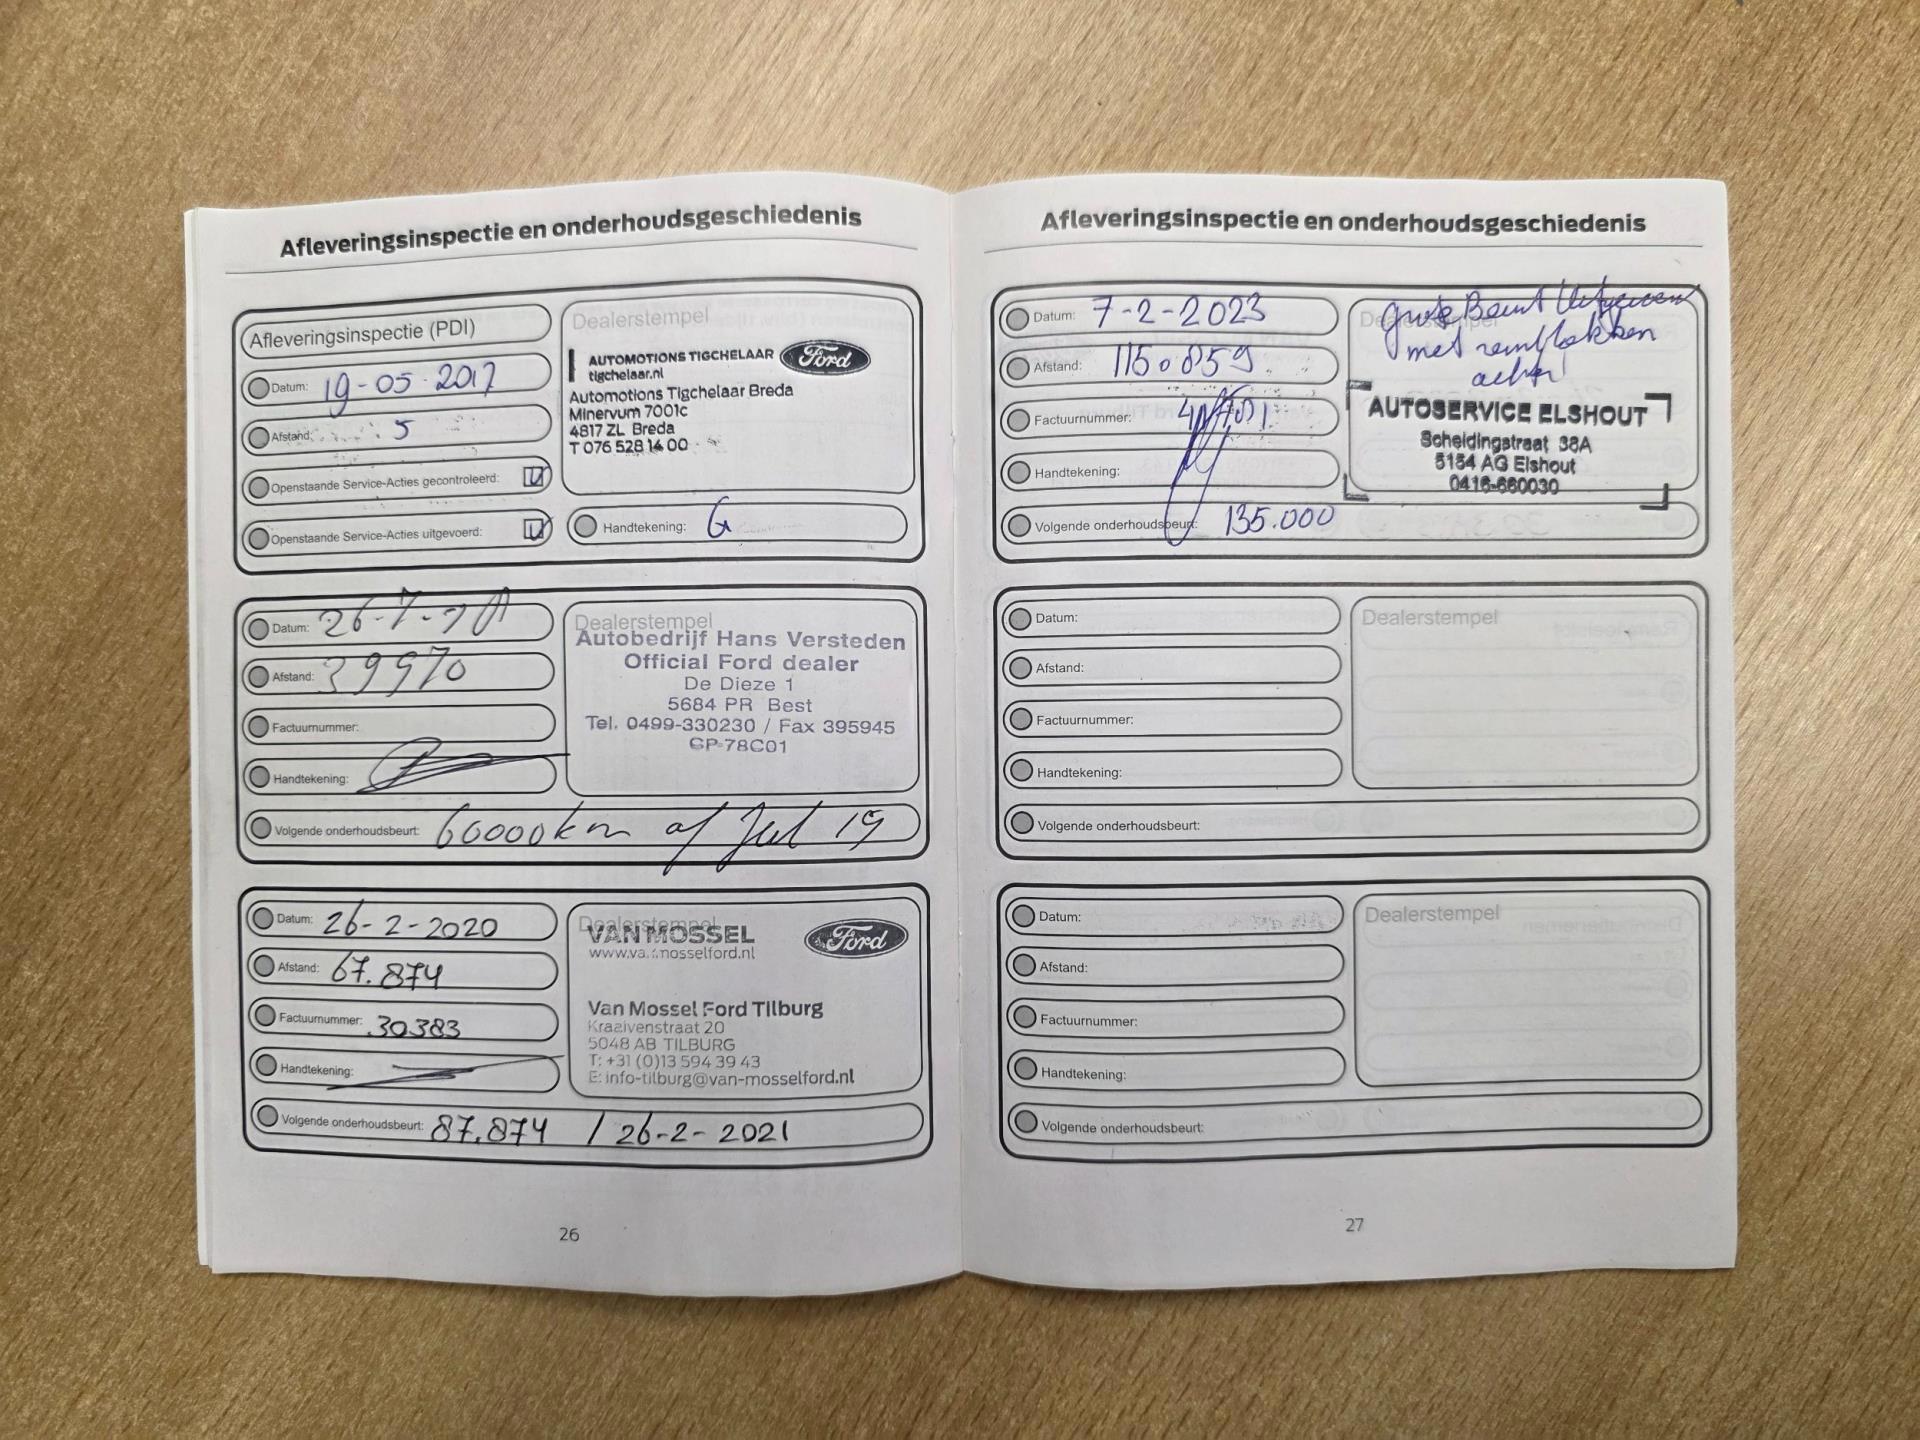 Afleveringsinspectie en onderhoudsgeschiedenis
Afleveringsinspectie (PDI)
Datum: 19-05-2017
Afstand: 5
Openstaande Service-Acties gecontroleerd:
Openstaande Service-Acties uitgevoerd:
Dealerstempel
AUTOMOTIONS TIGCHELAAR Ford
tigchelaar.nl
Automotions Tigchelaar Breda
Minervum 7001c
4817 ZL Breda
T 076 528 14 00
Handtekening: G
Datum: 26-7-
Afstand: 39970
Factuurnummer:
Handtekening:
Volgende onderhoudsbeurt: 60000km of Jul 19
Dealerstempel
Autobedrijf Hans Versteden
Official Ford dealer
De Dieze 1
5684 PR Best
Tel. 0499-330230 / Fax 395945
CP-78C01
Datum: 26-2-2020
Afstand: 67.874
Factuurnummer: 30383
Handtekening:
Volgende onderhoudsbeurt: 87.874 / 26-2-2021
Dealerstempel
VAN MOSSEL Ford
www.van-mosselford.nl
Van Mossel Ford Tilburg
Kraaivenstraat 20
5048 AB TILBURG
T: +31 (0)13 594 39 43
E: info-tilburg@van-mosselford.nl
26
Afleveringsinspectie en onderhoudsgeschiedenis
Datum: 7-2-2023
Afstand: 115.859
Factuurnummer:
Handtekening:
Volgende onderhoudsbeurt: 135.000
Dealerstempel
grote Beurt
met remblokken
achter
AUTOSERVICE ELSHOUT
Scheidingstraat 38A
5154 AG Elshout
0416-660030
Datum:
Afstand:
Factuurnummer:
Handtekening:
Volgende onderhoudsbeurt:
Dealerstempel
Datum:
Afstand:
Factuurnummer:
Handtekening:
Volgende onderhoudsbeurt:
Dealerstempel
27